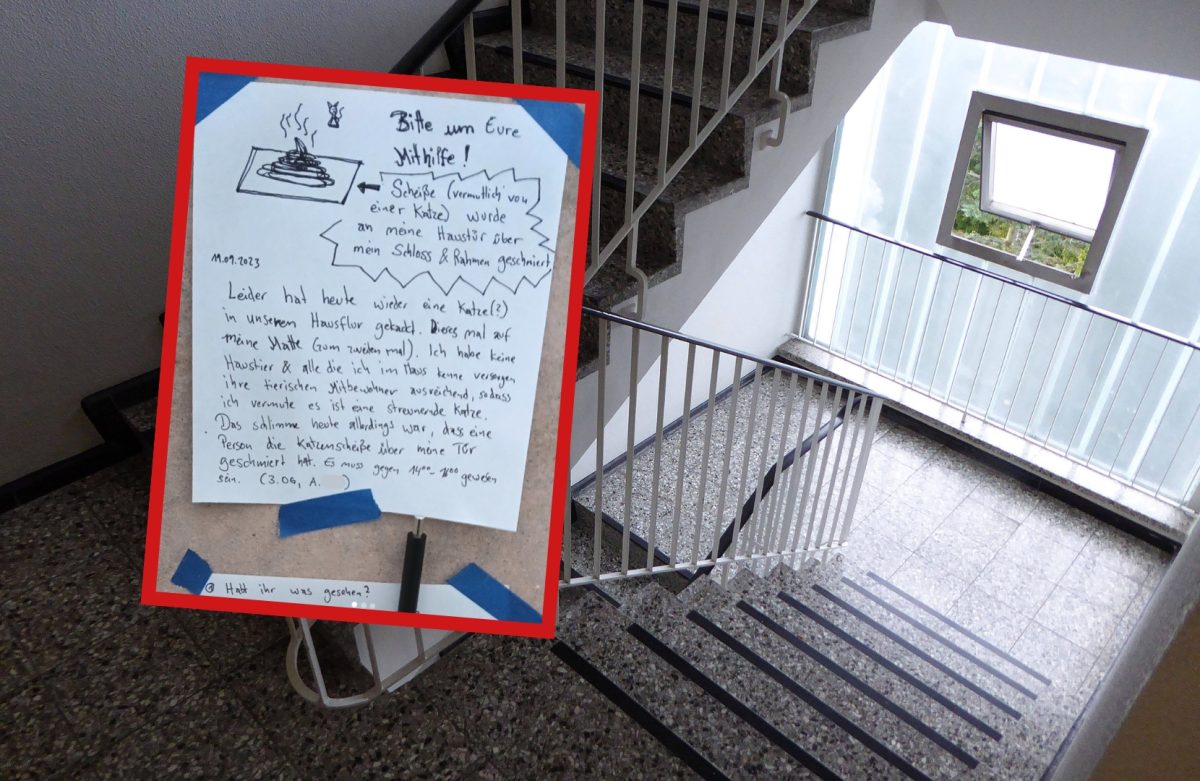 Bitte um Eure
Mithilfe!
Scheiße (vermutlich von
einer Katze) wurde
an meine Haustür über
mein Schloss & Rahmen geschmiert
11.09.2023
Leider hat heute wieder eine Katze(?)
in unserem Hausflur gekackt. Dieses mal auf
meine Matte (zum zweiten mal). Ich habe keine
Haustier & alle die ich im Haus kenne versorgen
ihre tierischen Mitbewohner ausreichend, sodass
ich vermute es ist eine streunende Katze.
Das schlimme heute allerdings war, dass eine
Person die Katzenscheiße über meine Tür
geschmiert hat. Es muss gegen gewesen
sein. (3.OG, A. )
Habt ihr was gesehen?